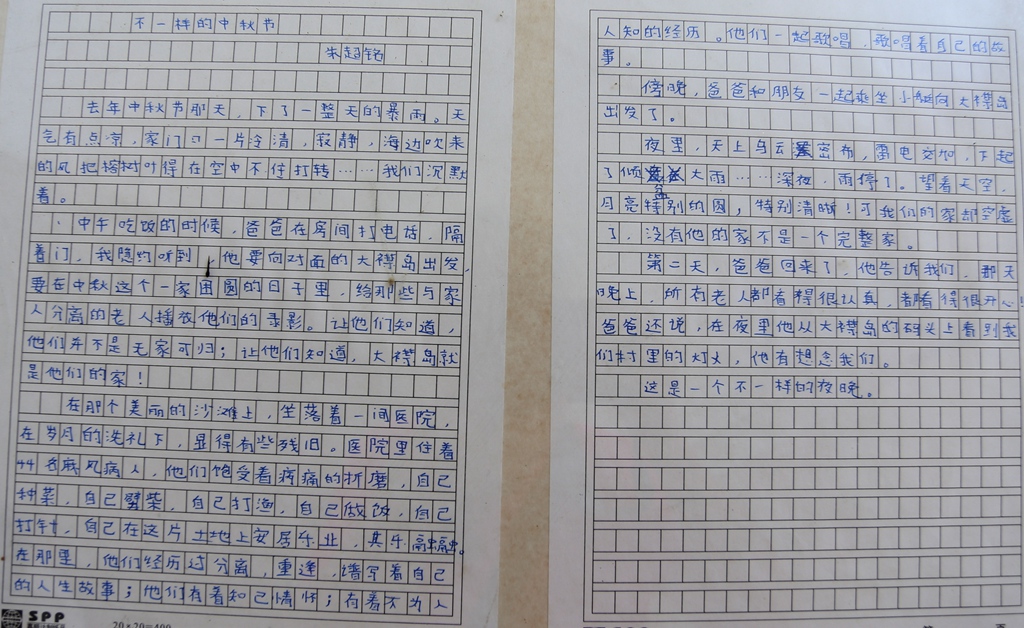 不一样的中秋节
朱超铭
去年中秋节那天，下了一整天的暴雨。天
气有点凉，家门口一片冷清，寂静，海边吹来
的风把榕树叶得在空中不住打转……我们沉默
着。
中午吃饭的时候，爸爸在房间打电话，隔
着门，我隐约听到，他要向对面的大襟岛出发，
要在中秋这个一家团圆的日子里，给那些与家
人分离的老人播放他们的录影。让他们知道，
他们并不是无家可归；让他们知道，大襟岛就
是他们的家！
在那个美丽的沙滩上，坐落着一间医院，
在岁月的洗礼下，显得有些残旧。医院里住着
卅名麻风病人，他们饱受着病痛的折磨，自己
种菜，自己劈柴，自己打渔，自己做饭，自己
打针，自己在这片土地上安居乐业，其乐融融。
在那里，他们经历过分离，重逢，谱写着自己
的人生故事；他们有着知己情怀；有着不为人
SPP
20×20=400
人知的经历。他们一起歌唱，歌唱着自己的故
事。
傍晚，爸爸和朋友一起乘坐小艇向大襟岛
出发了。
夜里，天上乌云密布，雷电交加，下起
了倾盆大雨……深夜，雨停了。望着天空，
月亮特别的圆，特别清晰！可我们的家却空虚
了，没有他的家不是一个完整家。
第二天，爸爸回来了，他告诉我们，那天
晚上，所有老人都看得很认真，都看得很开心！
爸爸还说，在夜里他从大襟岛的码头上看到我
们村里的灯火，他有想念我们。
这是一个不一样的夜晚。